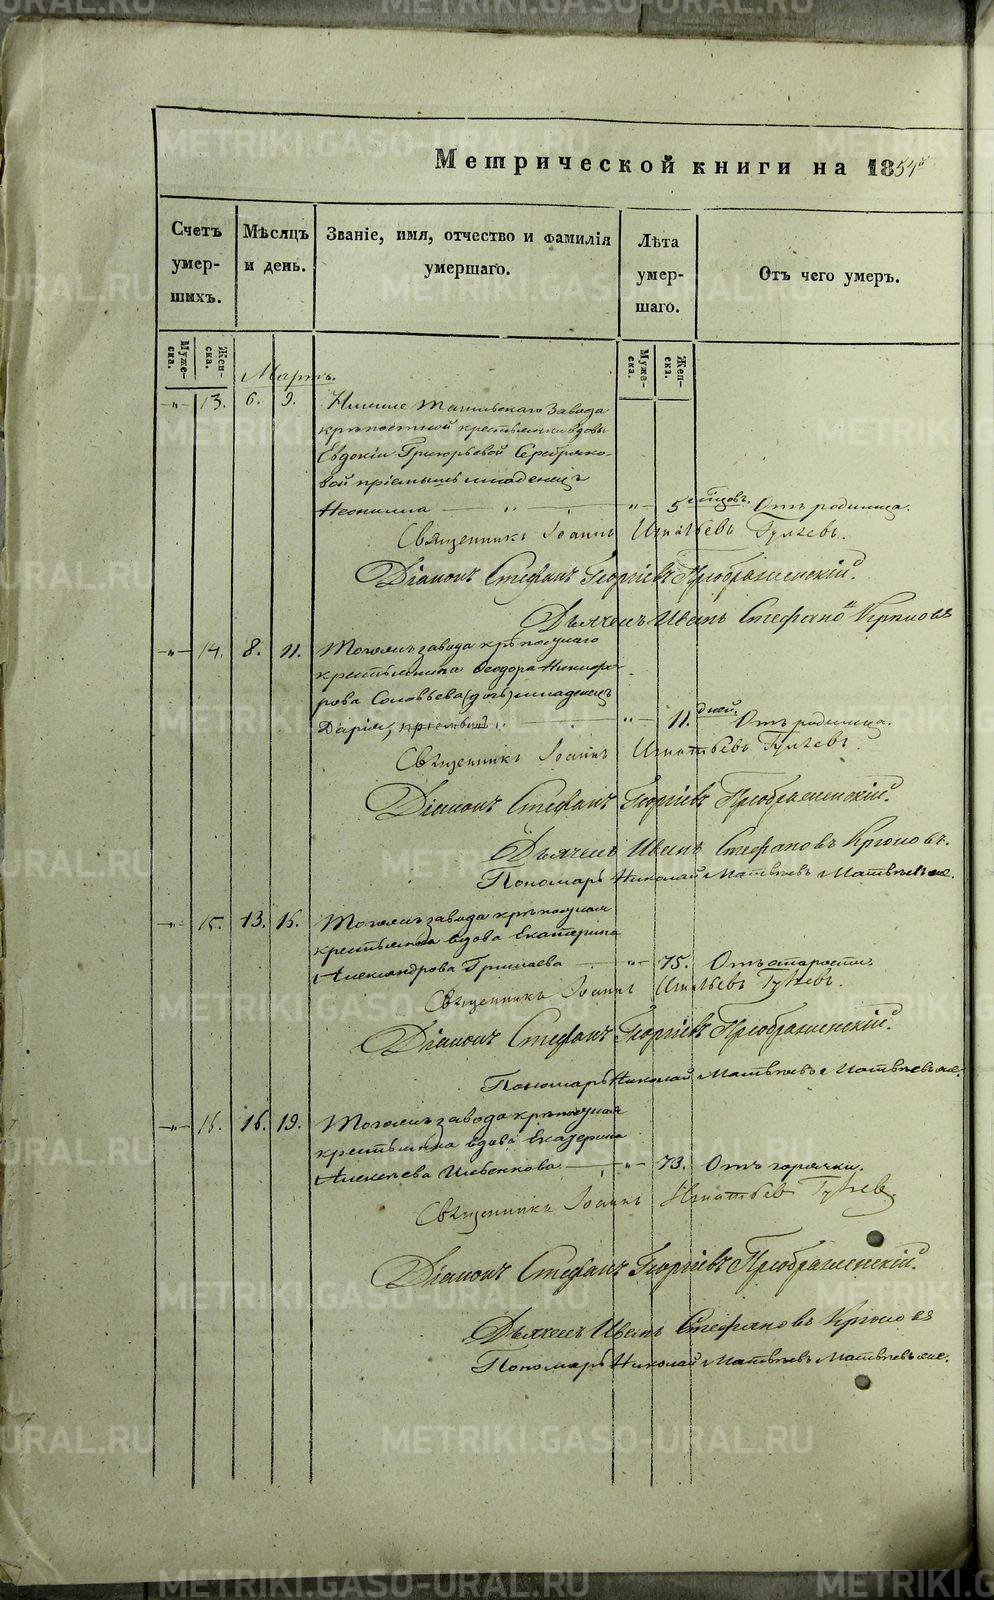 METRIKI.GASO-URAL.RU
Метрической книги на 1854
Счетъ умер-шихъ.
Мѣсяцъ и день.
Званіе, имя, отчество и фамилія умершаго.
Лѣта умер-шаго.
Отъ чего умеръ.
Муже-ска.
Жен-ска.
Муже-ска.
Жен-ска.
Мартъ.
-"- 13. 6. 9. Нижне Тагильскаго Завода
крѣпостной крестьянки вдовы
Евдокіи Григорьевой Серебряко-
вой пріемышъ младенецъ
Неонилла -"- 5 мѣсяцовъ. Отъ родимца.
Священникъ Іоаннъ Игнатьевъ
Діаконъ Стефанъ Георгіевъ Преображенскій.
Дьячекъ Иванъ Стефановъ Крюковъ
-"- 14. 8. 11. Тогожъ завода крѣпостнаго
крестьянина Ѳеодора Никифо-
рова Соловьева (дочь) младенецъ
Дарія, -"- 11. дней. Отъ родимца.
Священникъ Іоаннъ Игнатьевъ
Діаконъ Стефанъ Георгіевъ Преображенскій.
Дьячекъ Иванъ Стефановъ Крюковъ.
Пономарь Николай Матвѣевъ
-"- 15. 13. 16. Тогожъ завода крѣпостная
крестьянка вдова Екатерина
Александрова -"- 75. Отъ старости.
Священникъ Іоаннъ Игнатьевъ
Діаконъ Стефанъ Георгіевъ Преображенскій.
Пономарь Николай Матвѣевъ
-"- 16. 16. 19. Тогожъ завода крѣпостная
крестьянка вдова Екатерина
Алексѣева -"- 73. Отъ горячки.
Священникъ Іоаннъ Игнатьевъ
Діаконъ Стефанъ Георгіевъ Преображенскій.
Дьячекъ Иванъ Стефановъ Крюковъ
Пономарь Николай Матвѣевъ